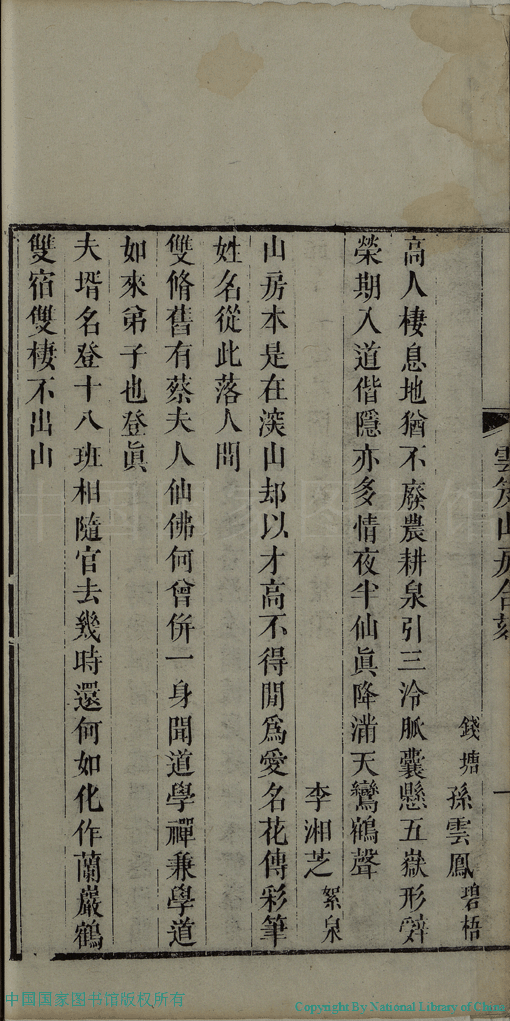 錢塘孫雲鳳碧梧
高人棲息地猶不廢農耕泉引三泠脈囊懸五嶽形辤
榮期入道偕隱亦多情夜半仙眞降滿天鸞鶴聲
李湘芝絮泉
山房本是在深山却以才高不得閒爲愛名花傳彩筆
姓名從此落人間
雙脩舊有蔡夫人仙佛何曾併一身聞道學禪兼學道
如來弟子也登眞
夫壻名登十八班相隨官去幾時還何如化作蘭巖鶴
雙宿雙棲不出山
一
中国国家图书馆版权所有
Copyright By National Library of China